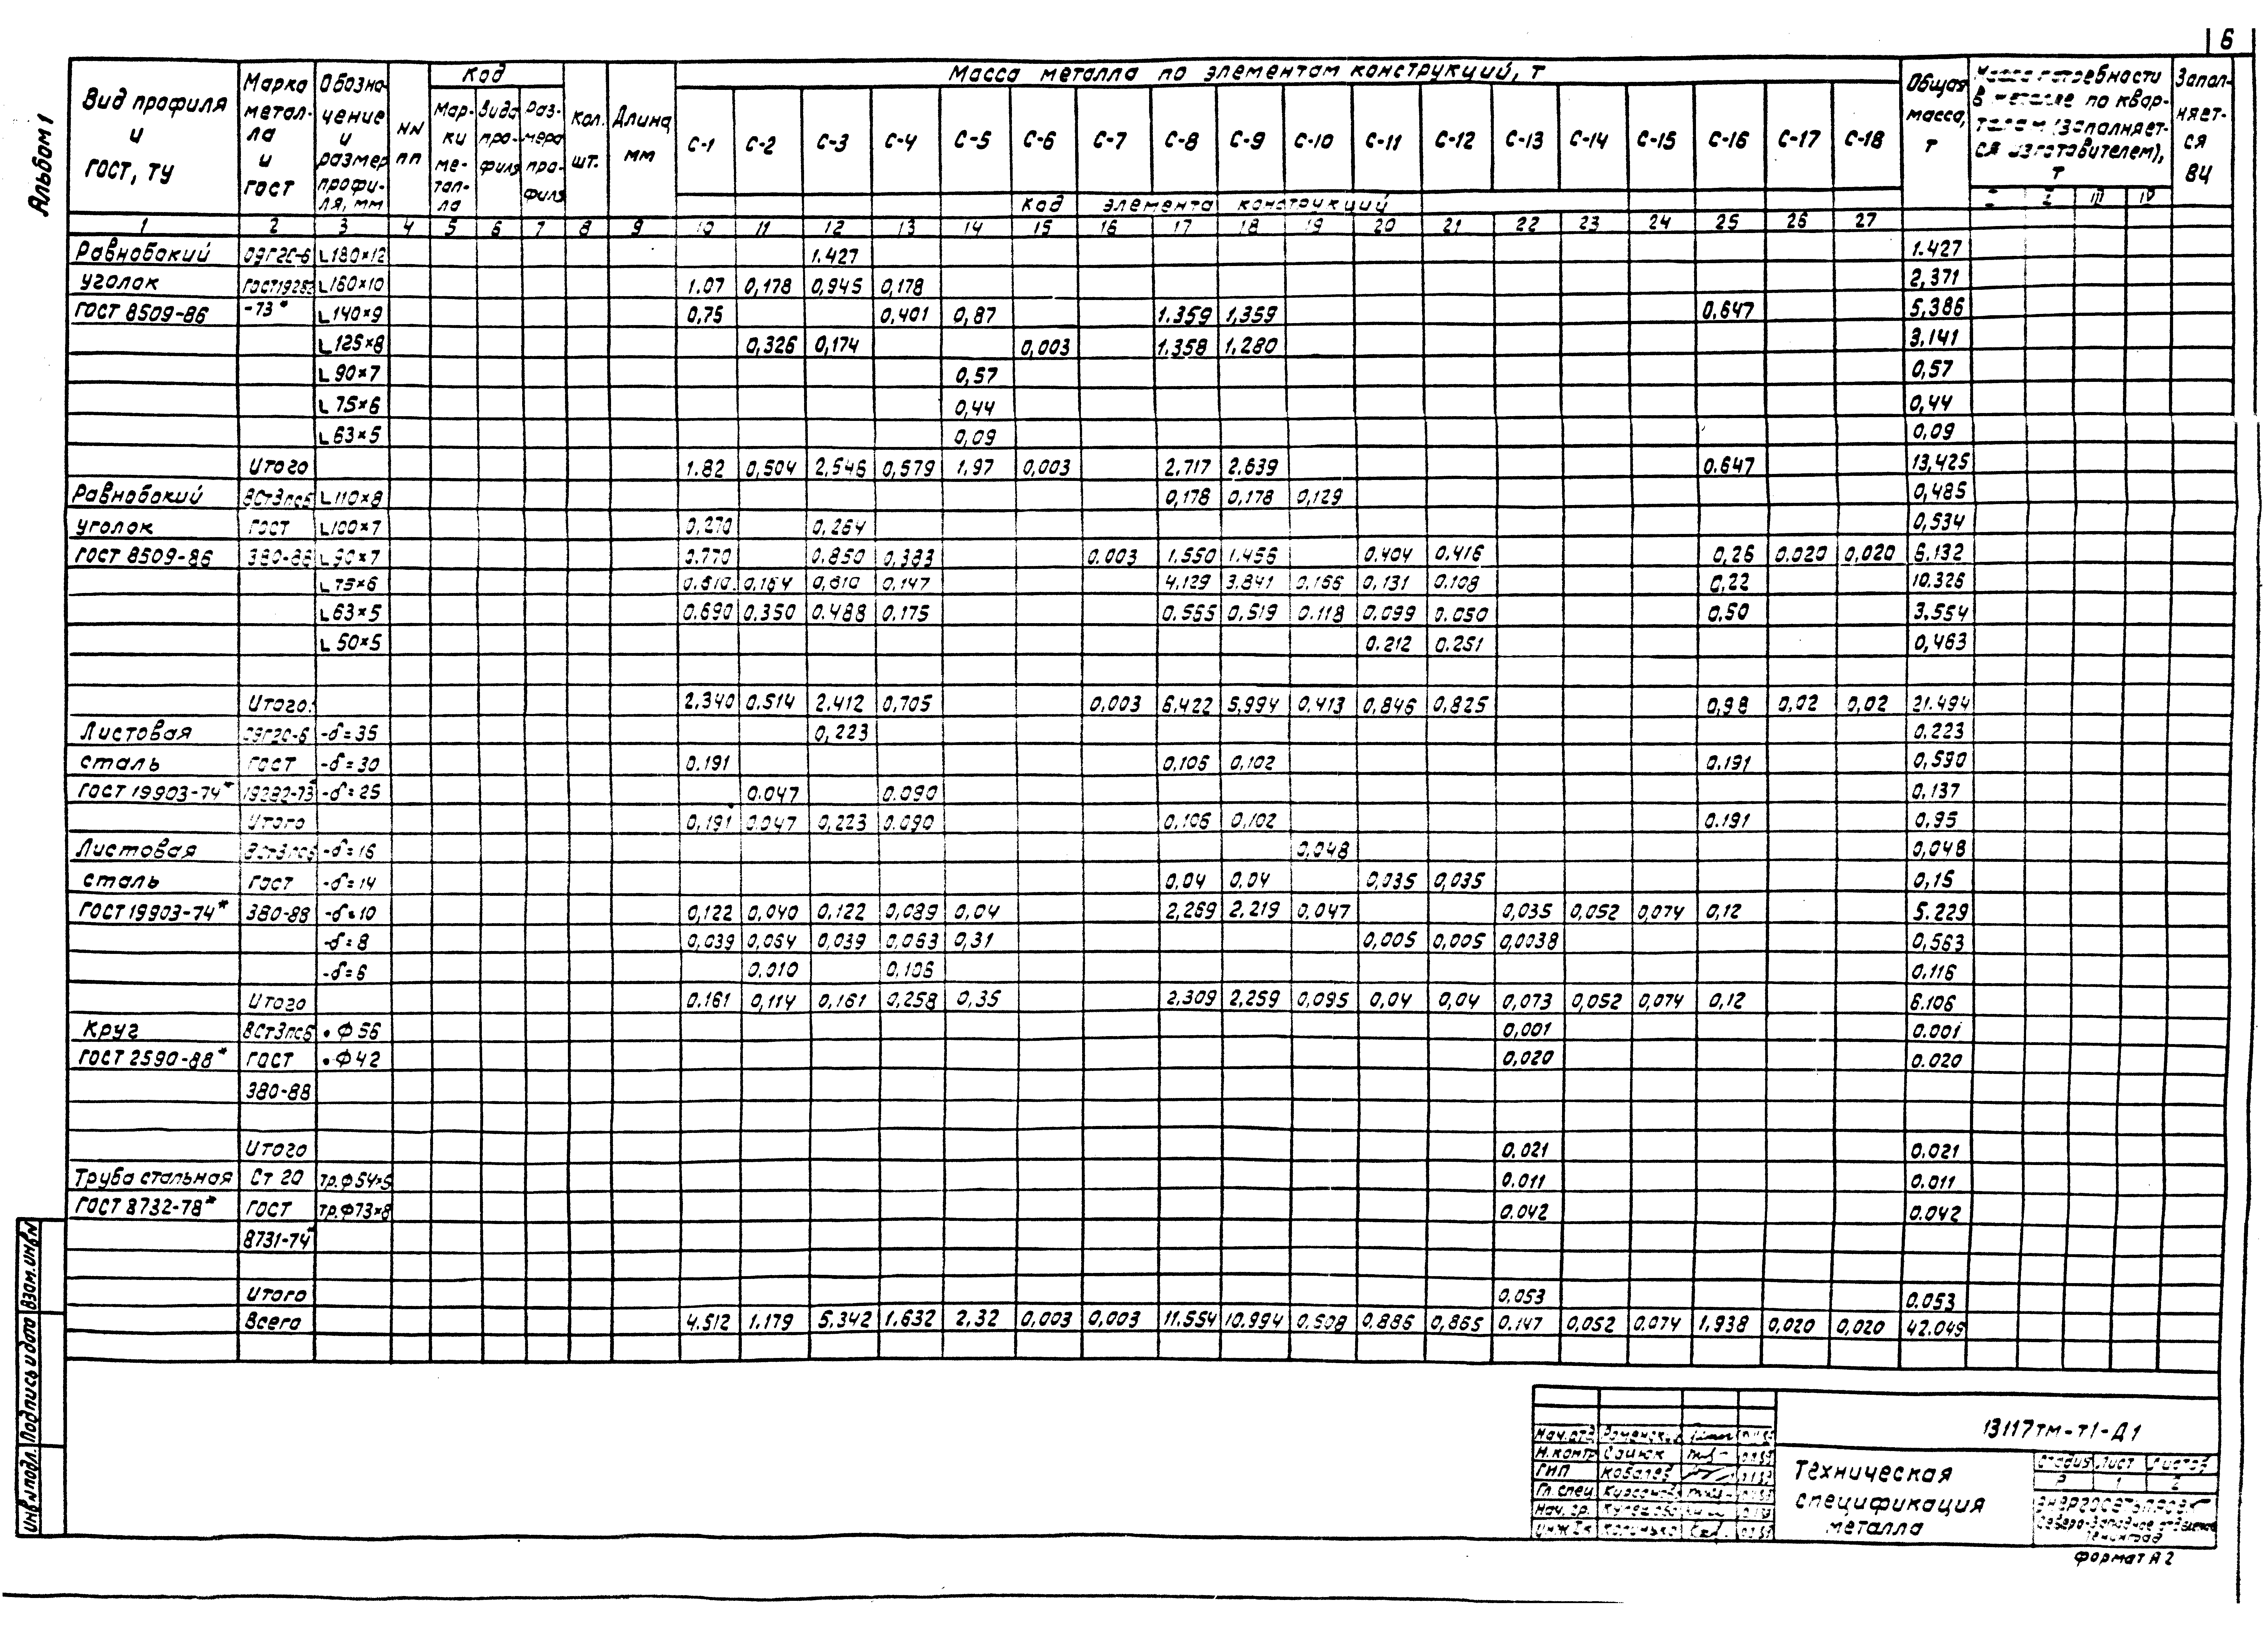 6
Альбом 1
Вид профиля и ГОСТ, ТУ
Марка металла и ГОСТ
Обозначение и размер профиля, мм
NN пп
Код
Марки металла
Вида профиля
Размера профиля
Кол. шт.
Длина мм
Масса металла по элементам конструкций, т
С-1 С-2 С-3 С-4 С-5 С-6 С-7 С-8 С-9 С-10 С-11 С-12 С-13 С-14 С-15 С-16 С-17 С-18
Код элемента конструкций
Общая масса, т
Масса потребности в металле по кварталам (заполняется изготовителем), т
I II III IV
Заполняется ВЦ
1 2 3 4 5 6 7 8 9 10 11 12 13 14 15 16 17 18 19 20 21 22 23 24 25 26 27
Равнобокий 09Г2С-6 L180×12 1.427 1.427
уголок ГОСТ19282 L160×10 1.07 0,178 0,945 0,178 2,371
ГОСТ 8509-86 -73* L140×9 0,75 0,401 0,87 1.359 1,359 0,647 5,386
L125×8 0,326 0,174 0,003 1.358 1,280 3,141
L90×7 0,57 0,57
L75×6 0,44 0,44
L63×5 0,09 0,09
Итого 1.82 0,504 2,546 0,579 1,97 0,003 2,717 2,639 0.647 13,425
Равнобокий ВСт3пс6 L110×8 0,178 0,178 0,129 0,485
уголок ГОСТ L100×7 0,270 0,264 0,534
ГОСТ 8509-86 380-88 L90×7 0.770 0.850 0,383 0.003 1.550 1.456 0.404 0,416 0,26 0.020 0,020 6.132
L75×6 0.610 0,164 0,810 0,147 4.129 3.841 0.166 0,131 0.108 0,22 10.326
L63×5 0.690 0,350 0.488 0,175 0.565 0,519 0.118 0,099 0.050 0,50 3.554
L50×5 0.212 0.251 0,463
Итого: 2,340 0.514 2.412 0,705 0,003 6,422 5,994 0,413 0,846 0,825 0,98 0,02 0,02 21.494
Листовая 09Г2С-6 -δ=35 0,223 0.223
сталь ГОСТ -δ=30 0.191 0.106 0,102 0.191 0,590
ГОСТ 19903-74* 19282-73* -δ=25 0.047 0.090 0,137
Итого 0,191 0.047 0,223 0.090 0,106 0,102 0.191 0,95
Листовая ВСт3пс6 -δ=16 0,048 0,048
сталь ГОСТ -δ=14 0,04 0,04 0,035 0,035 0,15
ГОСТ 19903-74* 380-88 -δ=10 0,122 0,040 0,122 0,089 0,04 2,269 2,219 0,047 0,035 0,052 0,074 0,12 5.229
-δ=8 0,039 0,064 0,039 0,063 0,31 0,005 0,005 0,0038 0,563
-δ=6 0.010 0.106 0.116
Итого 0.161 0,114 0,161 0,258 0,35 2,309 2,259 0,095 0,04 0,04 0,073 0,052 0,074 0,12 6.106
Круг ВСт3пс6 • Ф56 0,001 0.001
ГОСТ 2590-88* ГОСТ • Ф42 0,020 0.020
380-88
Итого 0.021 0.021
Труба стальная Ст 20 тр.Ф54×5 0.011 0.011
ГОСТ 8732-78* ГОСТ тр.Ф73×8 0.042 0.042
8731-74*
Итого 0.053 0.053
Всего 4.512 1.179 5,342 1,632 2,32 0,003 0,003 11.554 10.994 0,508 0.886 0,865 0.147 0,052 0.074 1,938 0,020 0,020 42.045
Инв.N подл. Подпись и дата Взам.инв.N
13117тм-т1-Д1
Нач.отд.
Н.контр.
ГИП Ковалев
Гл.спец.
Нач.гр.
Инж.Iк
Техническая
спецификация
металла
Стадия Лист Листов
Р 1 2
Энергосетьпроект
Северо-Западное отделение
Ленинград
Формат А2